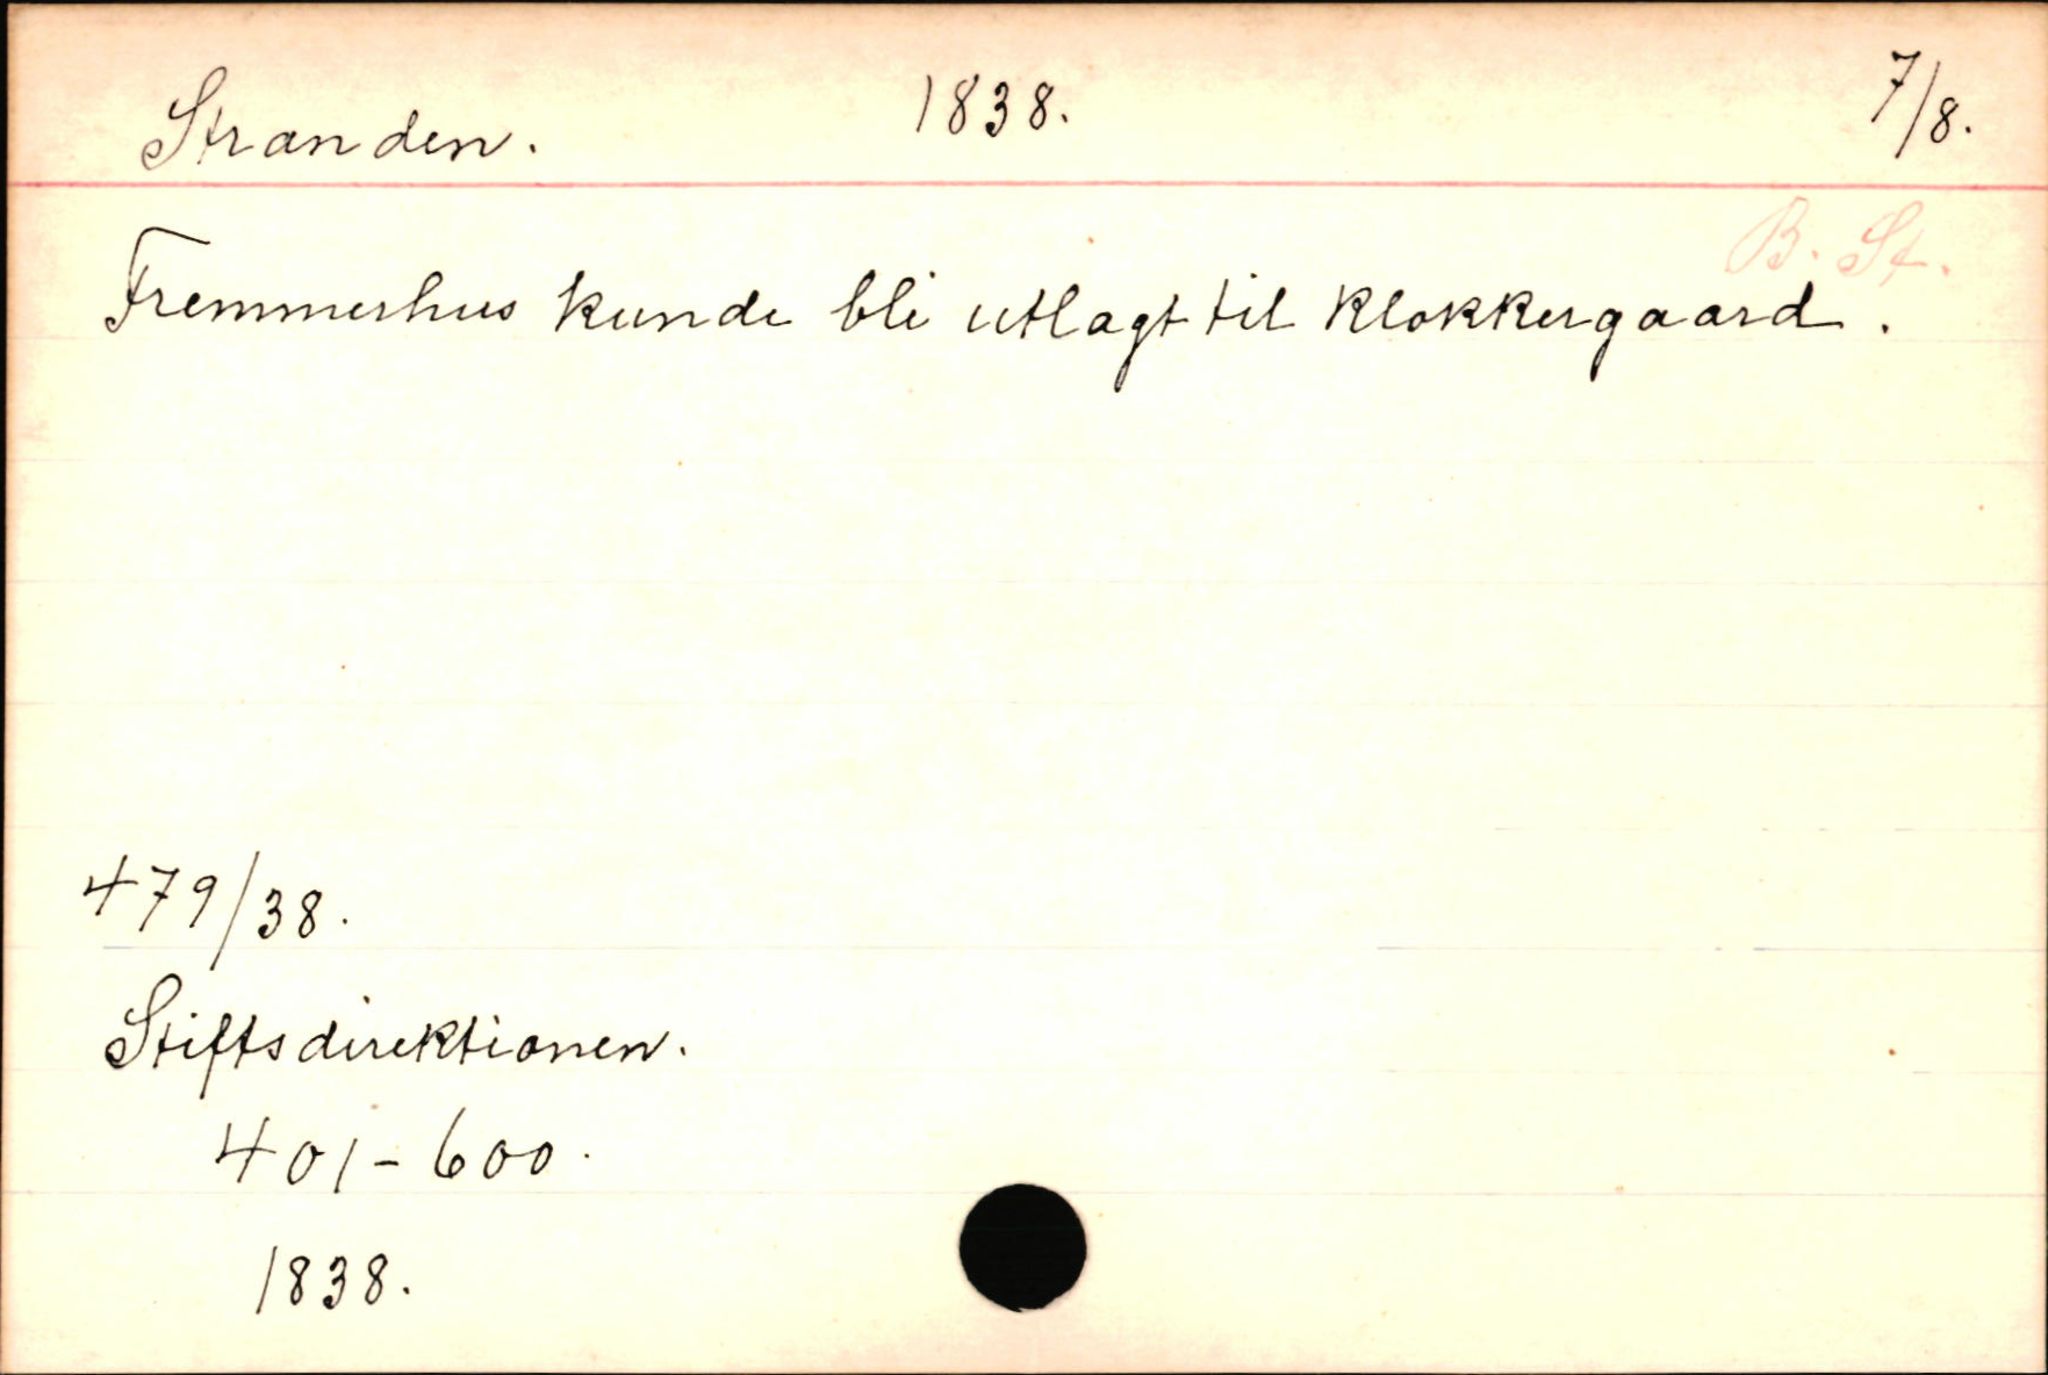 Stranden. 1838. 7/8.
B. St.
Fremmerhus kunde bli utlagt til klokkergaard.
479/38.
Stiftsdirektionen.
401-600.
1838.